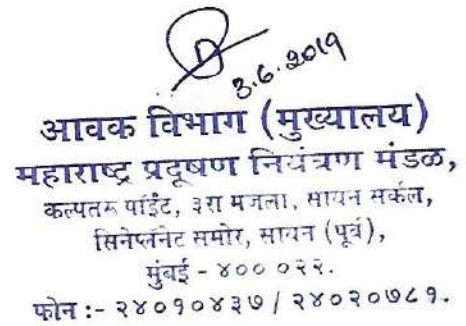 3.6.2019
आवक विभाग (मुख्यालय)
महाराष्ट्र प्रदूषण नियंत्रण मंडळ,
कल्पतरू पॉईंट, ३रा मजला, सायन सर्कल,
सिनेप्लॅनेट समोर, सायन (पूर्व),
मुंबई - ४०० ०२२.
फोन :- २४०१०४३७ / २४०२०७८१.